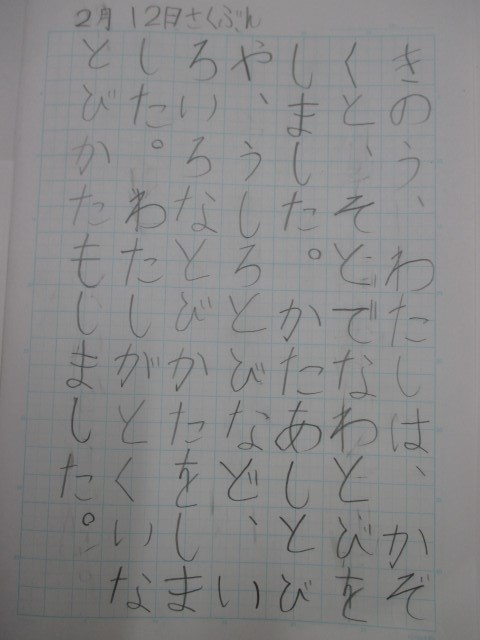 2月12日さくぶん
きのう、わたしは、かぞ
くと、そどでなわとびを
しました。かたあしとび
や、うしろとびなど、い
ろいろなとびかたをしま
した。わたしがとくいな
とびかたもしました。